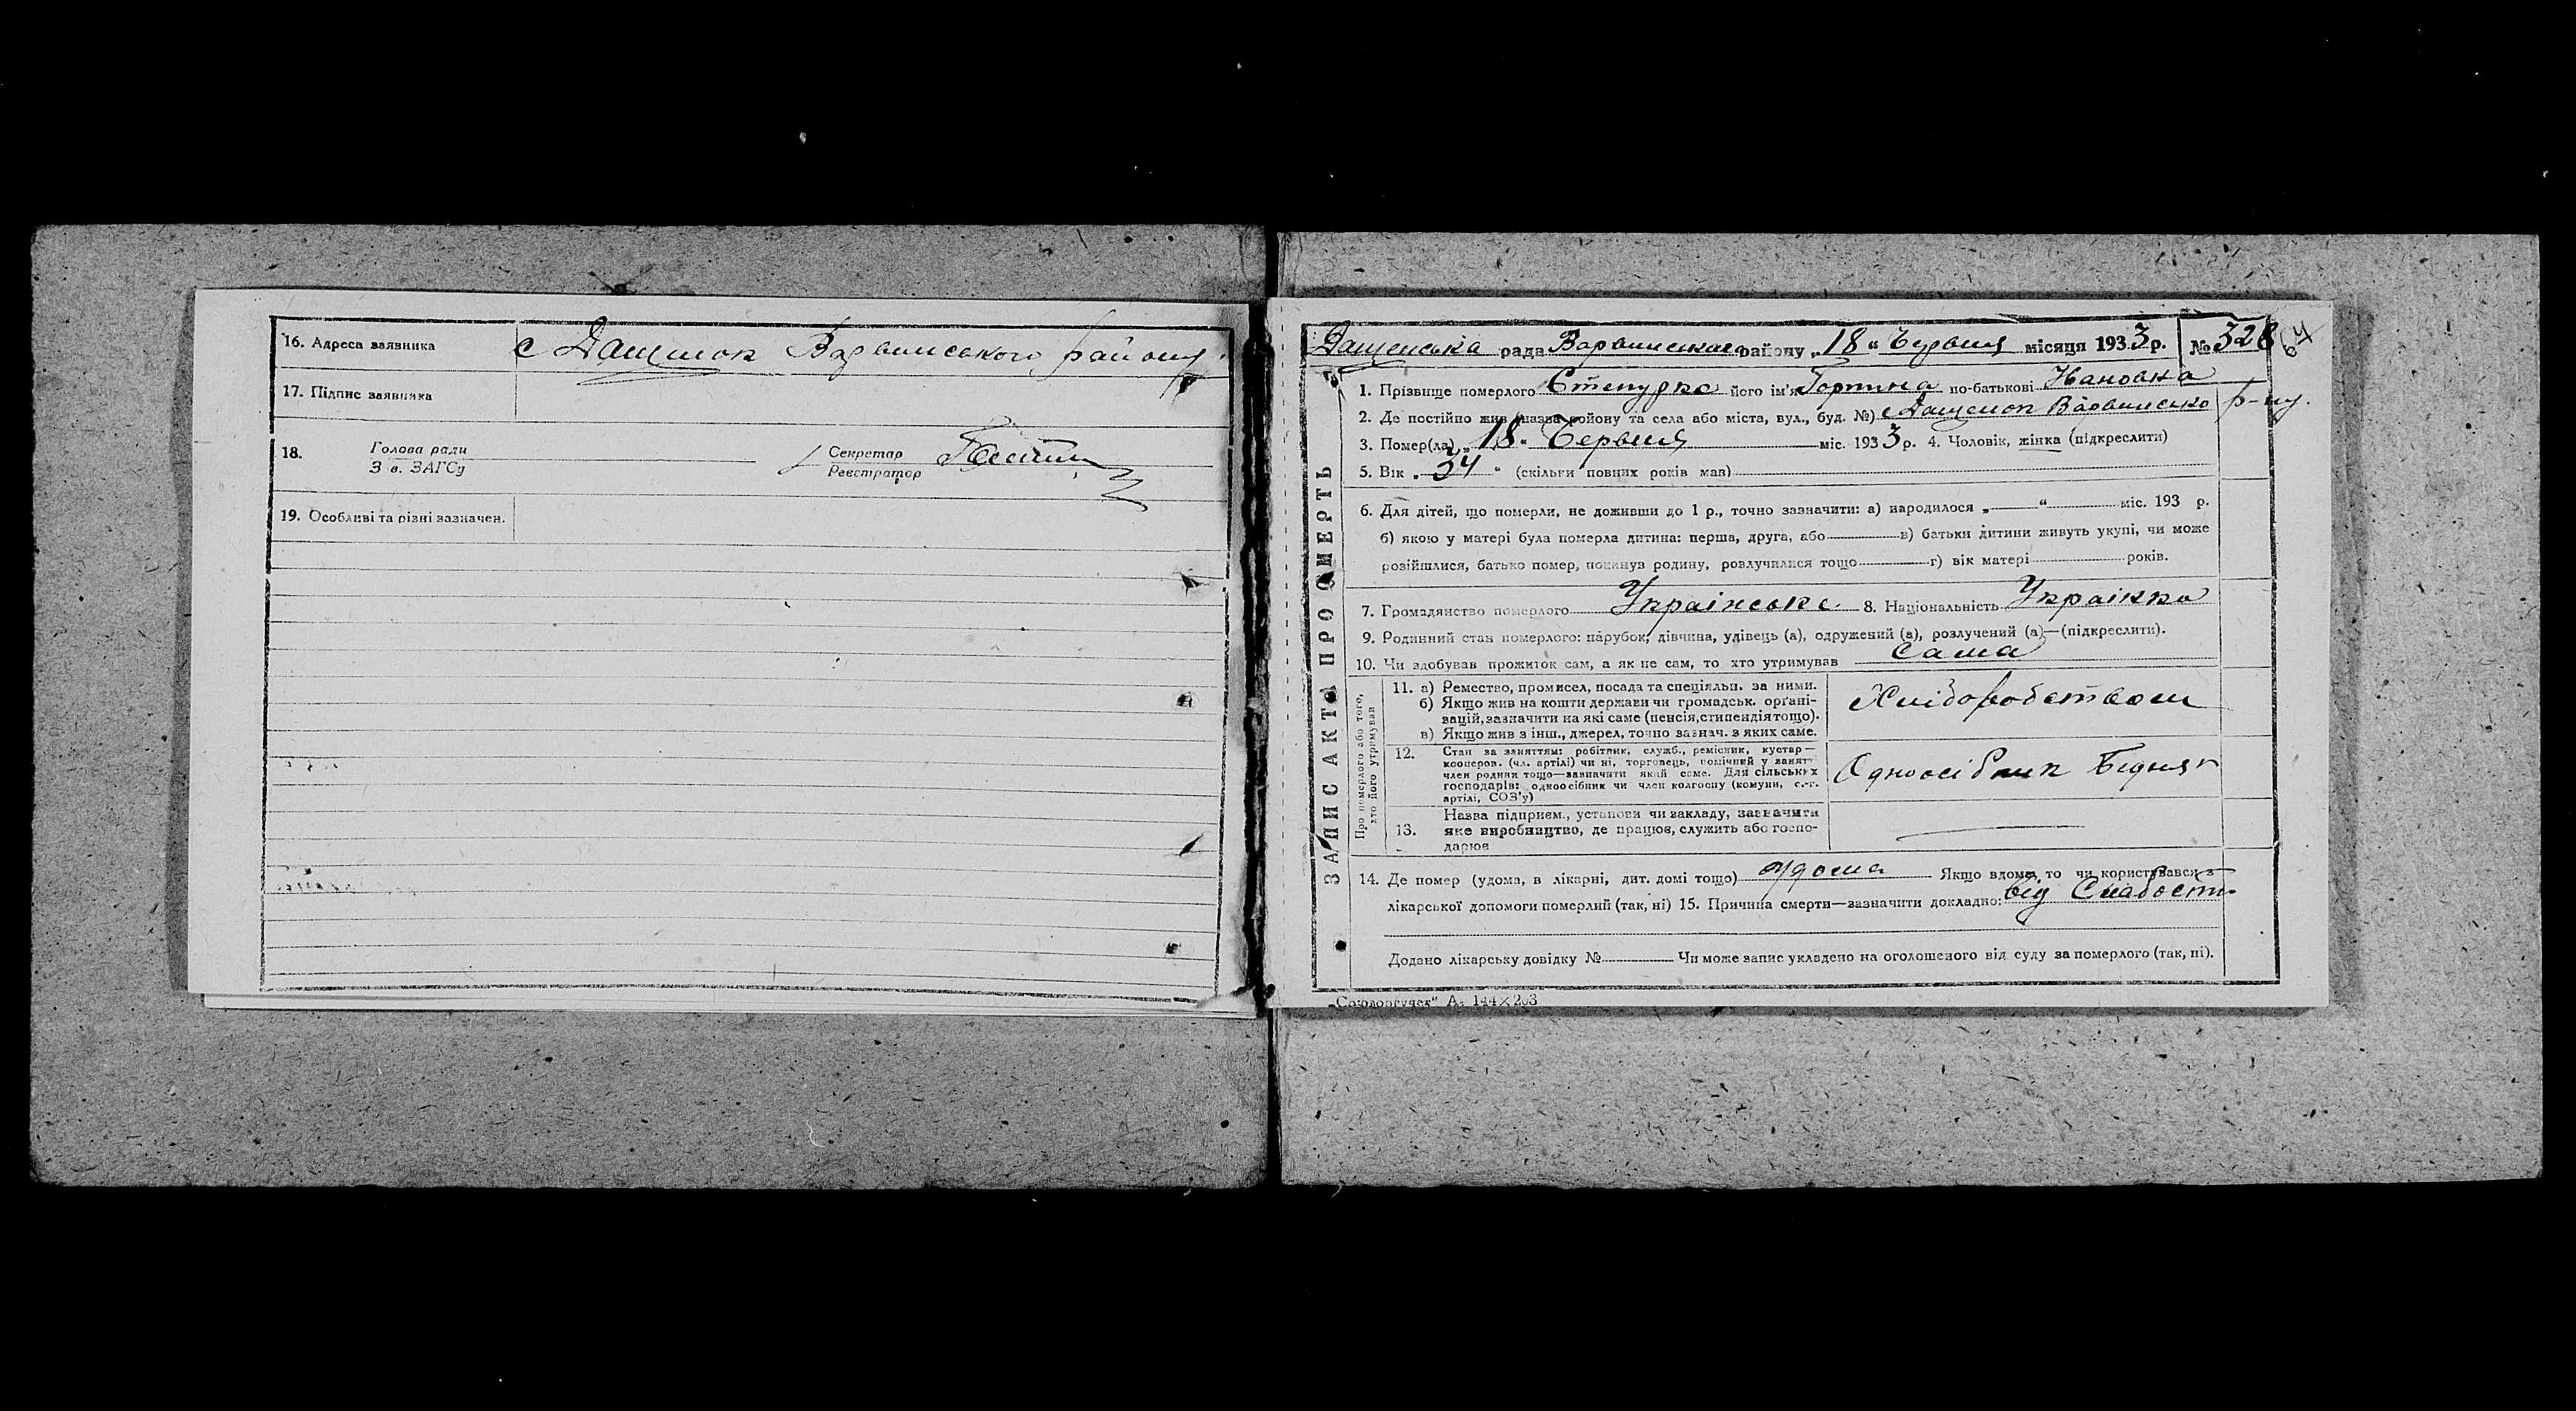 16. Адреса заявника с Дащенок Варвинського району.
17. Підпис заявника
18. Голова ради
З в. ЗАГСу
Секретар
Реєстратор
19. Особливі та різні зазначен.
Дащенська рада Варвинського району „18“ Червня місяця 1933 р. № 328
64
ЗАПИС АКТА ПРО СМЕРТЬ
1. Прізвище померлого його ім'я Горпина по-батькові Ивановна
2. Де постійно жив (назва району та села або міста, вул., буд. №) с Дащенок Варвинсько р-ну.
3. Помер(ла) „18“ Червня міс. 1933 р. 4. Чоловік, жінка (підкреслити)
5. Вік „34“ (скільки повних років мав)
6. Для дітей, що померли, не доживши до 1 р., точно зазначити: а) народилося „ “ міс. 193 р.
б) якою у матері була померла дитина: перша, друга, або в) батьки дитини живуть укупі, чи може
розійшлися, батько помер, покинув родину, розлучилися тощо г) вік матері років.
7. Громадянство померлого Українське 8. Національність Українка
9. Родинний стан померлого: парубок, дівчина, удівець (а), одружений (а), розлучений (а)—(підкреслити).
10. Чи здобував прожиток сам, а як не сам, то хто утримував Сама
Про померлого або того,
хто його утримував
11. а) Ремество, промисел, посада та спеціяльн. за ними.
б) Якщо жив на кошти держави чи громадськ. орґані-
зацій, зазначити на які саме (пенсія, стипендія тощо).
в) Якщо жив з інш., джерел, точно зазнач. з яких саме.
Хліборобством
12. Стан за заняттям: робітник, служб., ремісник, кустар—
кооперов. (чл. артілі) чи ні, торговець, помічний у занятт
член родини тощо—зазначити який саме. Для сільських
господарів: одноосібник чи член колгоспу (комуни, с.-г.
артілі, СОЗ'у)
Одноосібник Бедняк
13. Назва підприєм., установи чи закладу, зазначити
яке виробництво, де працює, служить або госпо-
дарює
14. Де помер (удома, в лікарні, дит. домі тощо) удома Якщо вдома, то чи користувався з
лікарської допомоги померлий (так, ні) 15. Причина смерти—зазначити докладно: від Слабости
Додано лікарську довідку № Чи може запис укладено на оголошеного від суду за померлого (так, ні).
„Союзоргучет“ А. 144×203